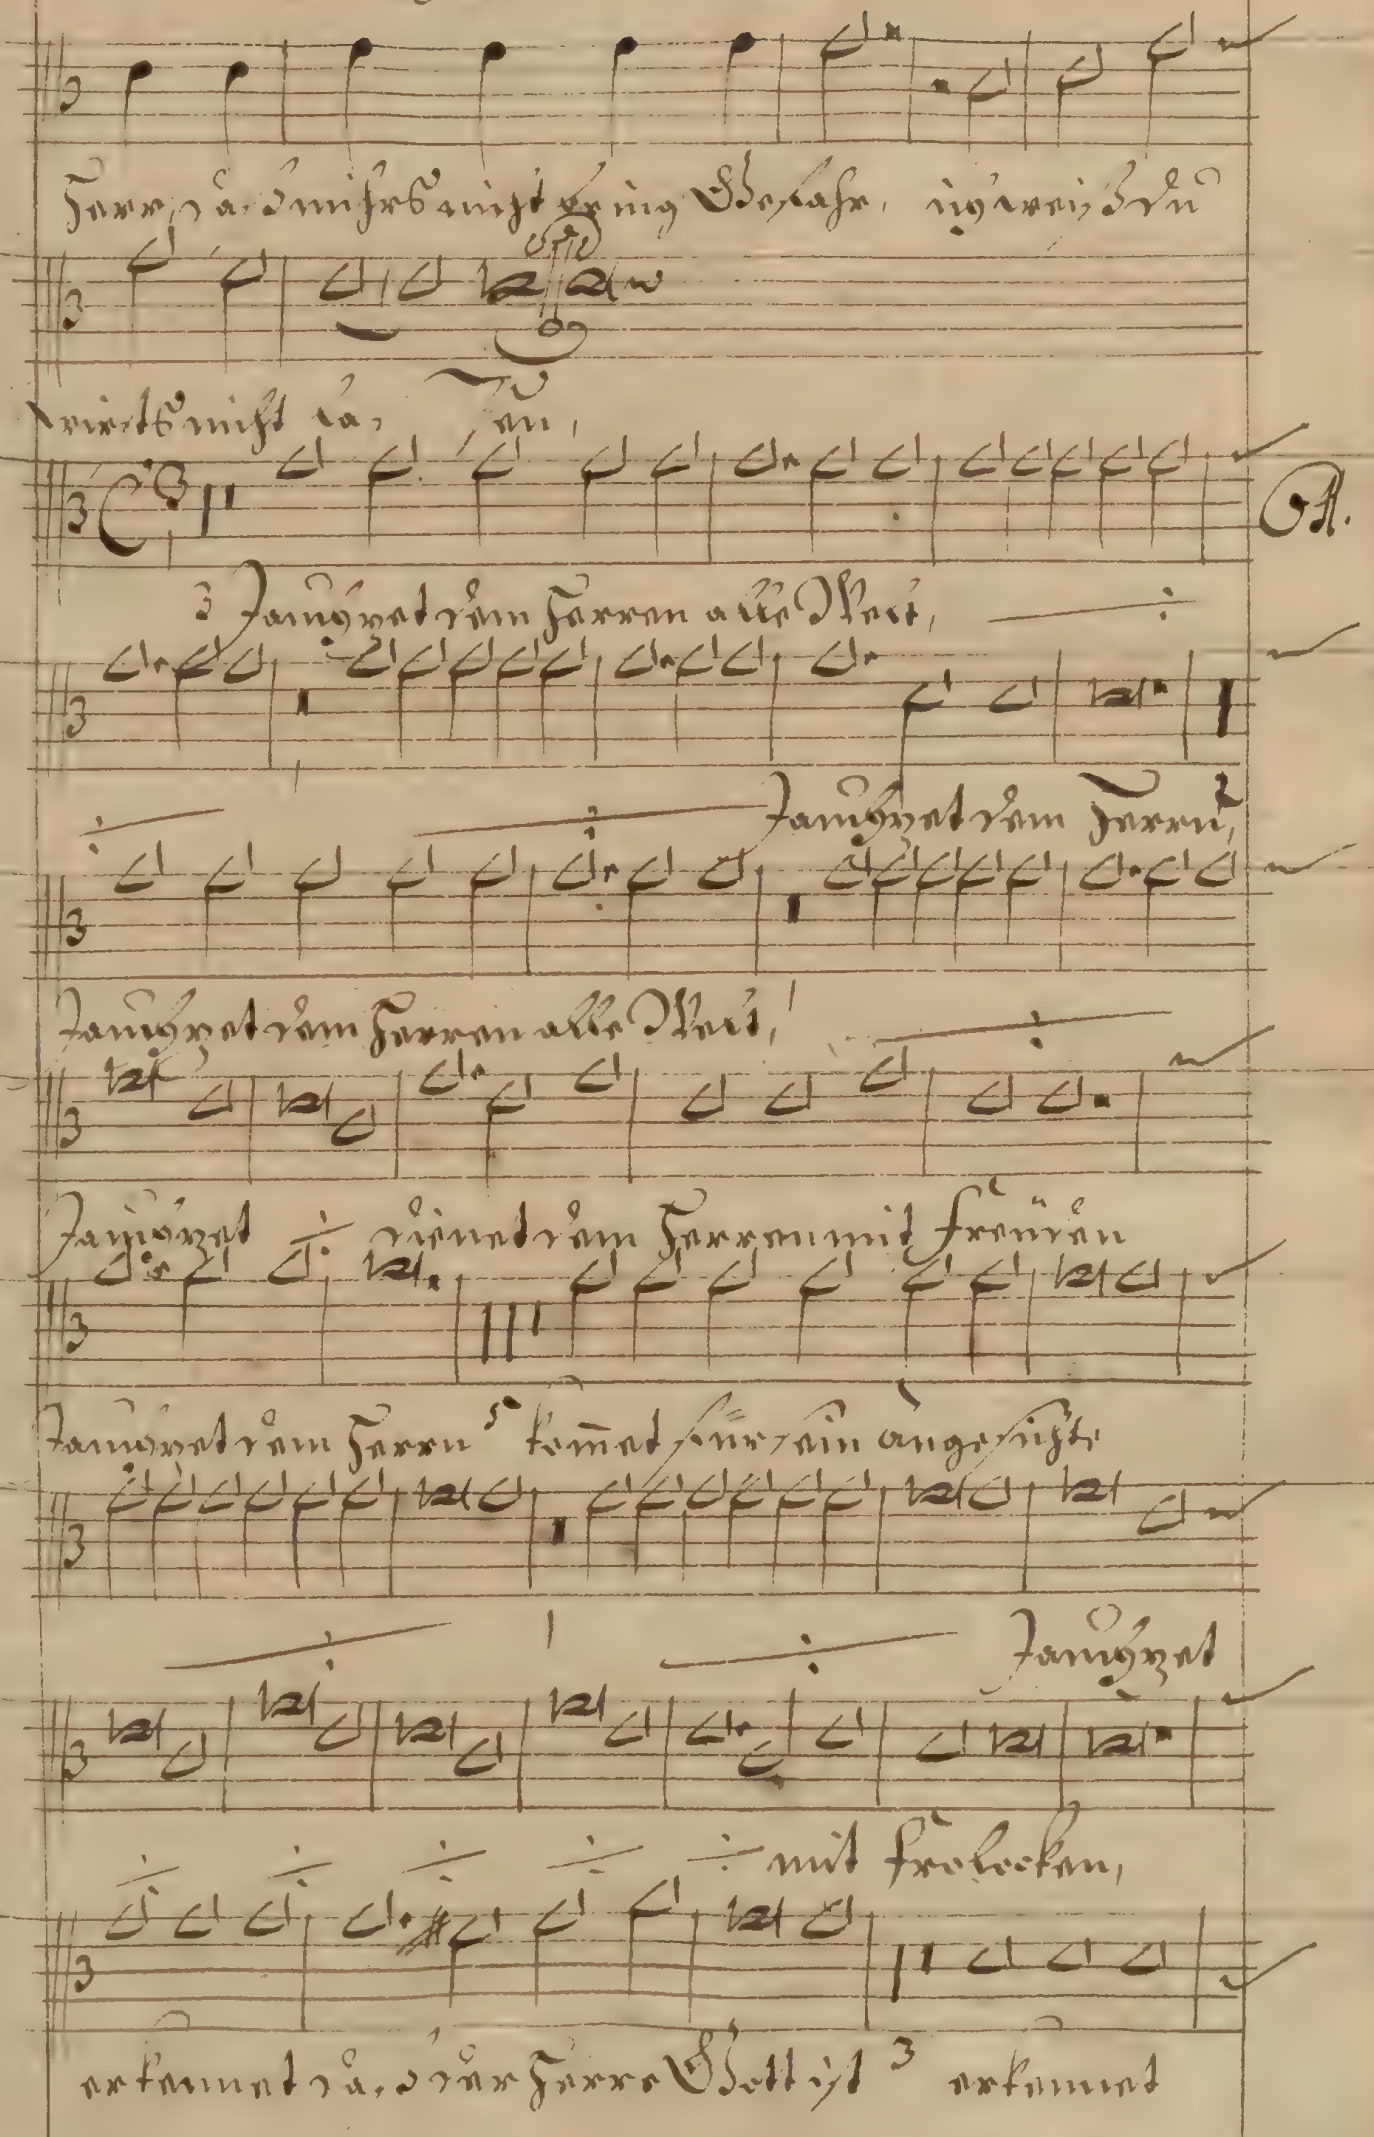 Herr, daß mihrs nicht bring Gefahr, ich weiß du
wirsts nicht laßen,
3 Jauchzet dem Herren alle Welt, ÷
÷ ÷ Jauchzet dem Herrn, 2
Jauchzet dem Herren alle Welt, 1 ÷
Jauchzet ÷ dienet dem Herren mit freüden
Jauchzet dem Herrn 5 kom̄et für sein angesichte
÷ 1 ÷ Jauchzet
÷ ÷ ÷ ÷ ÷ mit frolocken,
erkennet daß der Herre Gott ist 3 erkennet